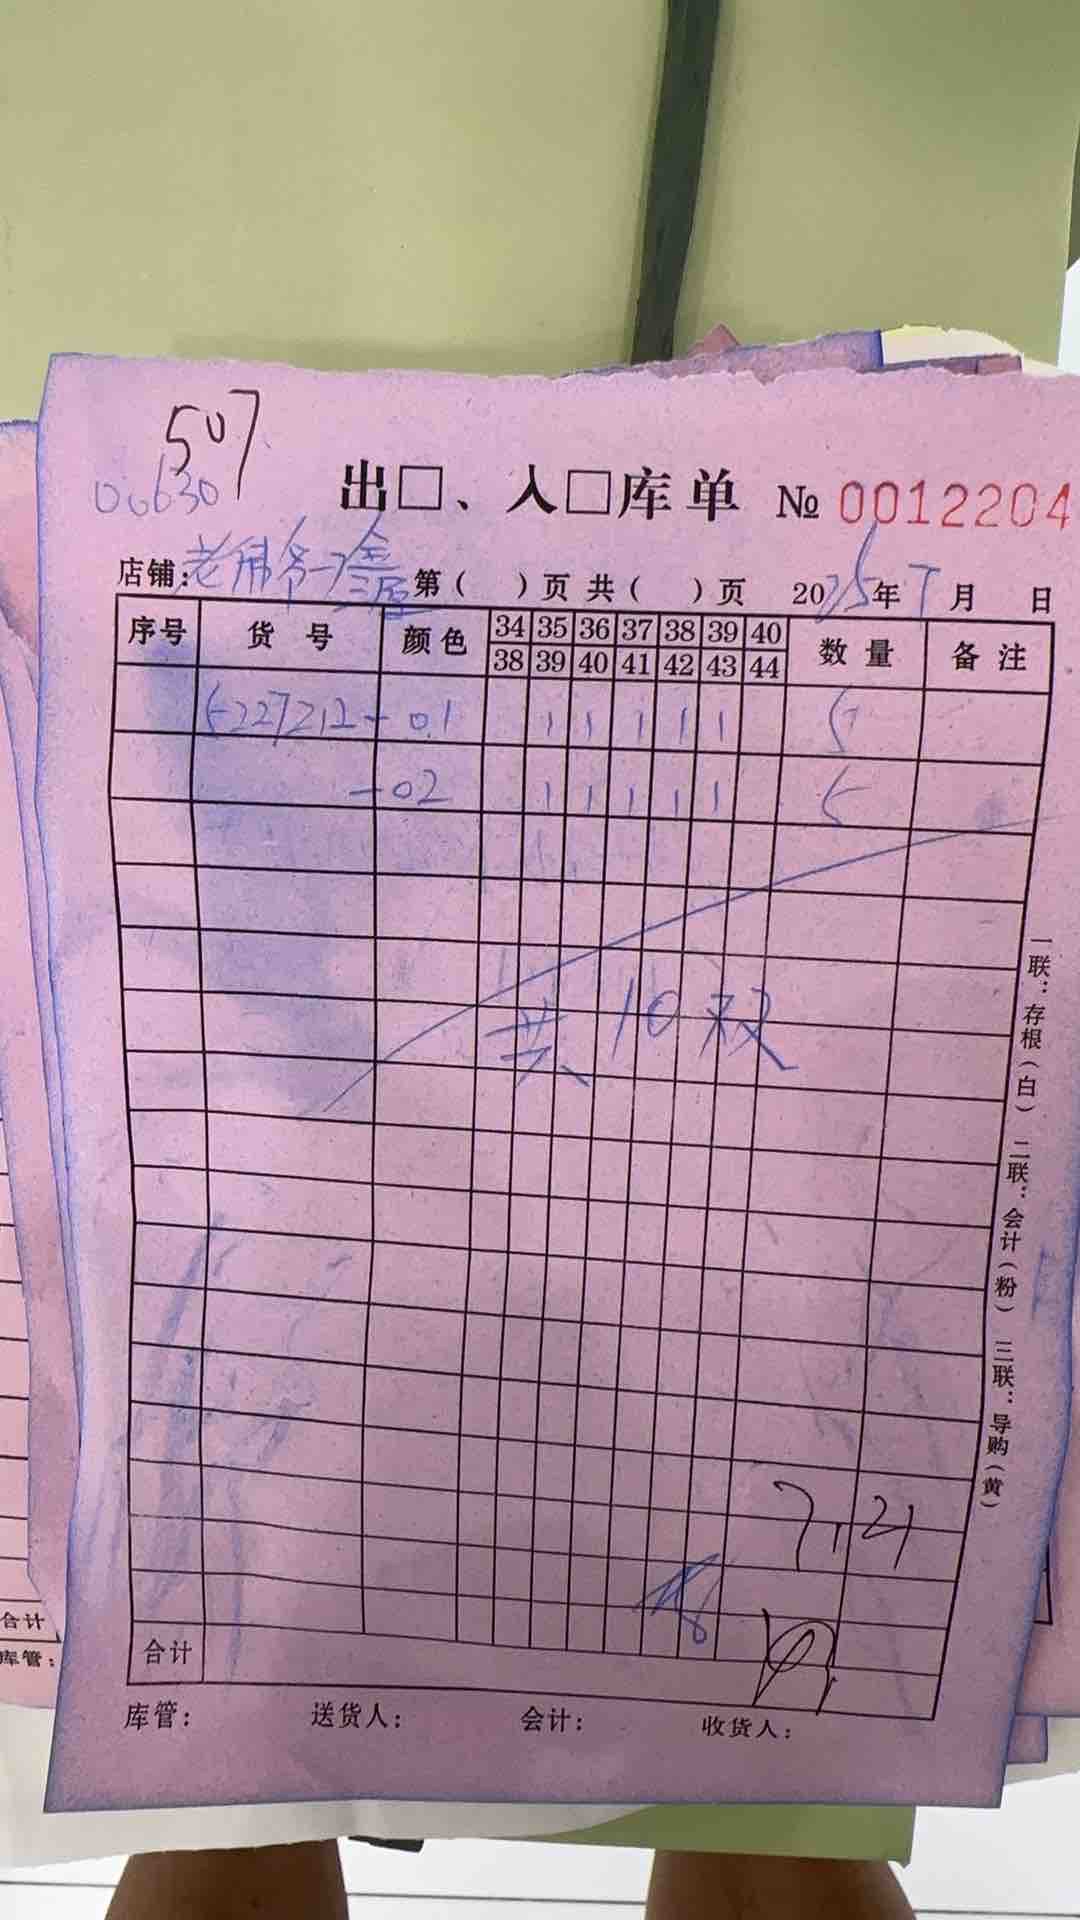 507
00630
出□、入□库单 № 0012204
店铺:老佛爷 第( )页 共( )页 2025年7月 日
序号 货号 颜色 34 35 36 37 38 39 40 数量 备注
38 39 40 41 42 43 44
5227212-01 1 1 1 1 1 5
-02 1 1 1 1 1 5
共10双
7.21
合计
库管: 送货人: 会计: 收货人:
一联:存根(白) 二联:会计(粉) 三联:导购(黄)
合计
库管: